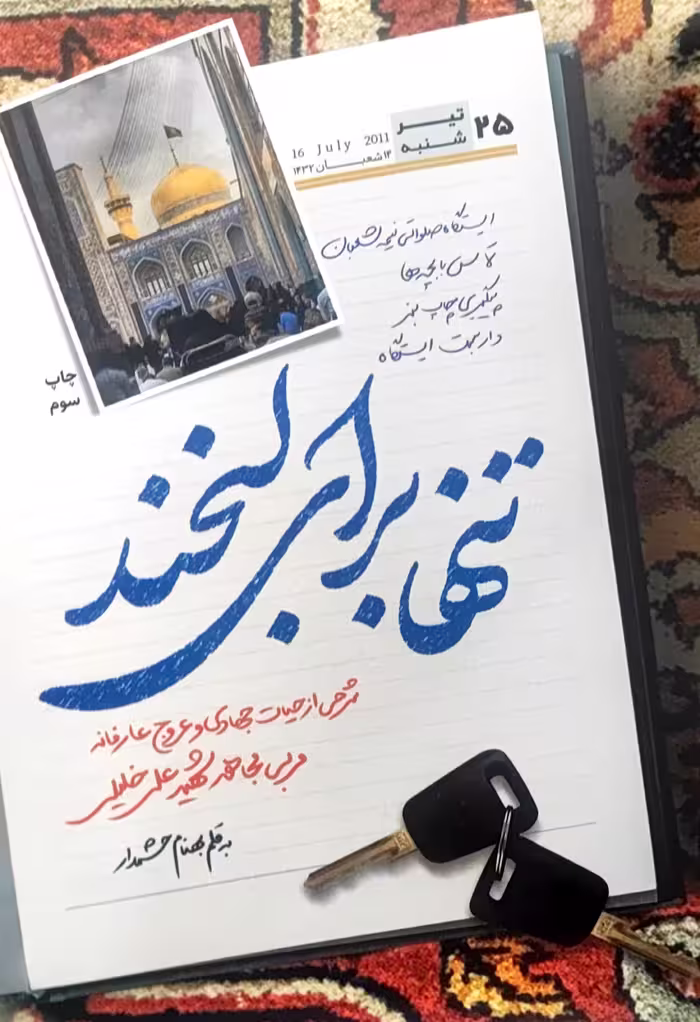 ۲۵
تیر
شنبه
16 July 2011
۱۴ شعبان ۱۴۳۲
ایستگاه صلواتی نیمه شعبان
تماس با بچه‌ها
پیگیری چاپ بنر
داربست ایستگاه
چاپ
سوم
تنها برای لبخند
شرحی از حیات جهادی و عروج عارفانه
مربی مجاهد شهید علی خلیلی
به قلم بهنام حشمدار